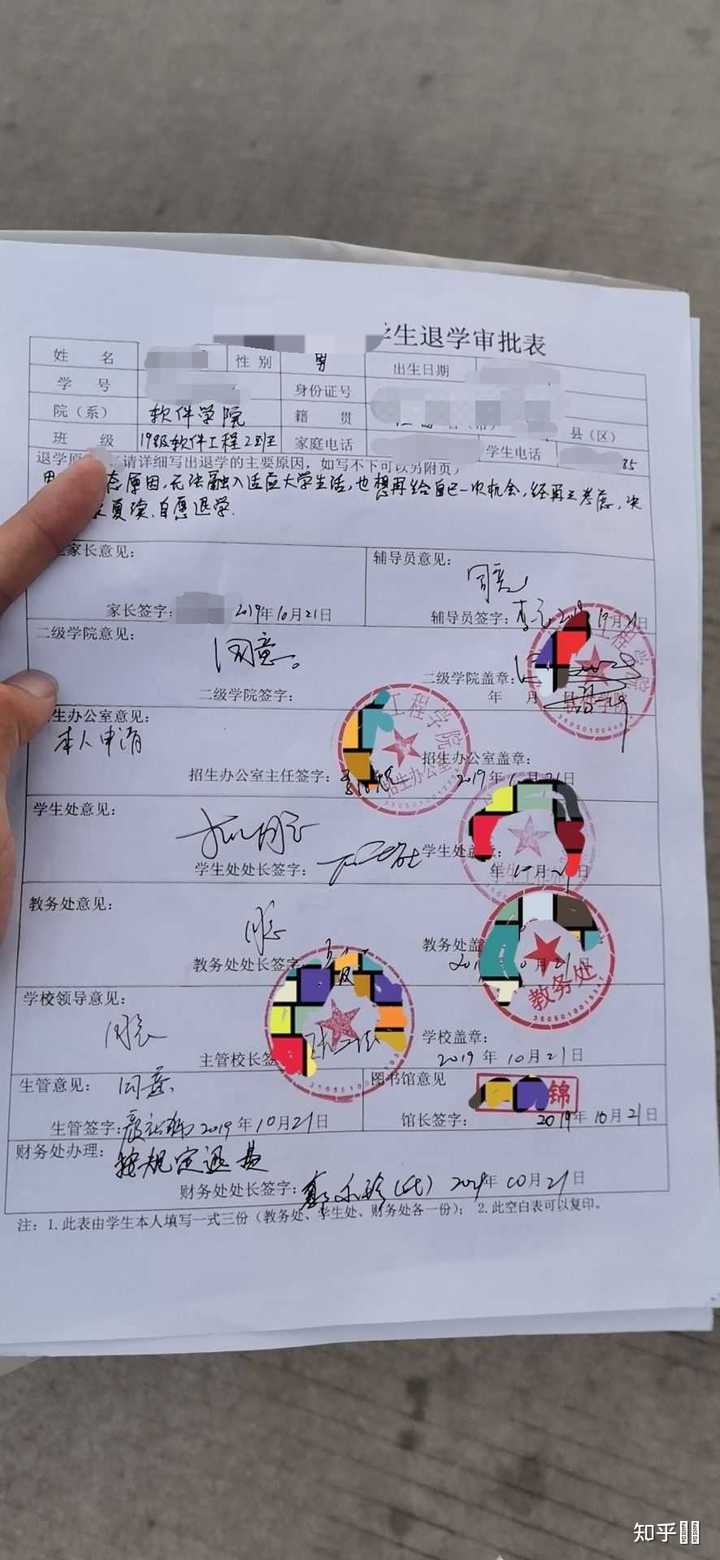 学生退学审批表
姓 名 性 别 男 出生日期
学 号 身份证号
院（系） 软件学院 籍 贯 县（区）
班 级 19级软件工程2班 家庭电话 学生电话 85
退学原 请详细写出退学的主要原因，如写不下可以另附页）
原因，无法融入适应大学生活，也想再给自己一次机会，经再三考虑，决
复读，自愿退学.
家长意见： 辅导员意见：
同意
家长签字： 2019年10月21日 辅导员签字： 月21日
二级学院意见：
同意。
二级学院签字： 二级学院盖章：
年 月 日
工程学院
生办公室意见：
本人申请
招生办公室主任签字： 招生办公室盖章：
2019年10月21日
工程学院
招生办公室
学生处意见：
学生处处长签字： 学生处盖章：
年10月21日
教务处意见：
同意
教务处处长签字 教务处盖
月21日
教务处
学校领导意见：
同意
主管校长签 学校盖章：
2019年10月21日
生管意见： 同意 图书馆意见
锦
生管签字： 2019年10月21日 馆长签字： 2019年10月21日
财务处办理： 按规定退费
财务处处长签字： 2019年10月21日
注：1.此表由学生本人填写一式三份（教务处、学生处、财务处各一份）；2.此空白表可以复印。
知乎